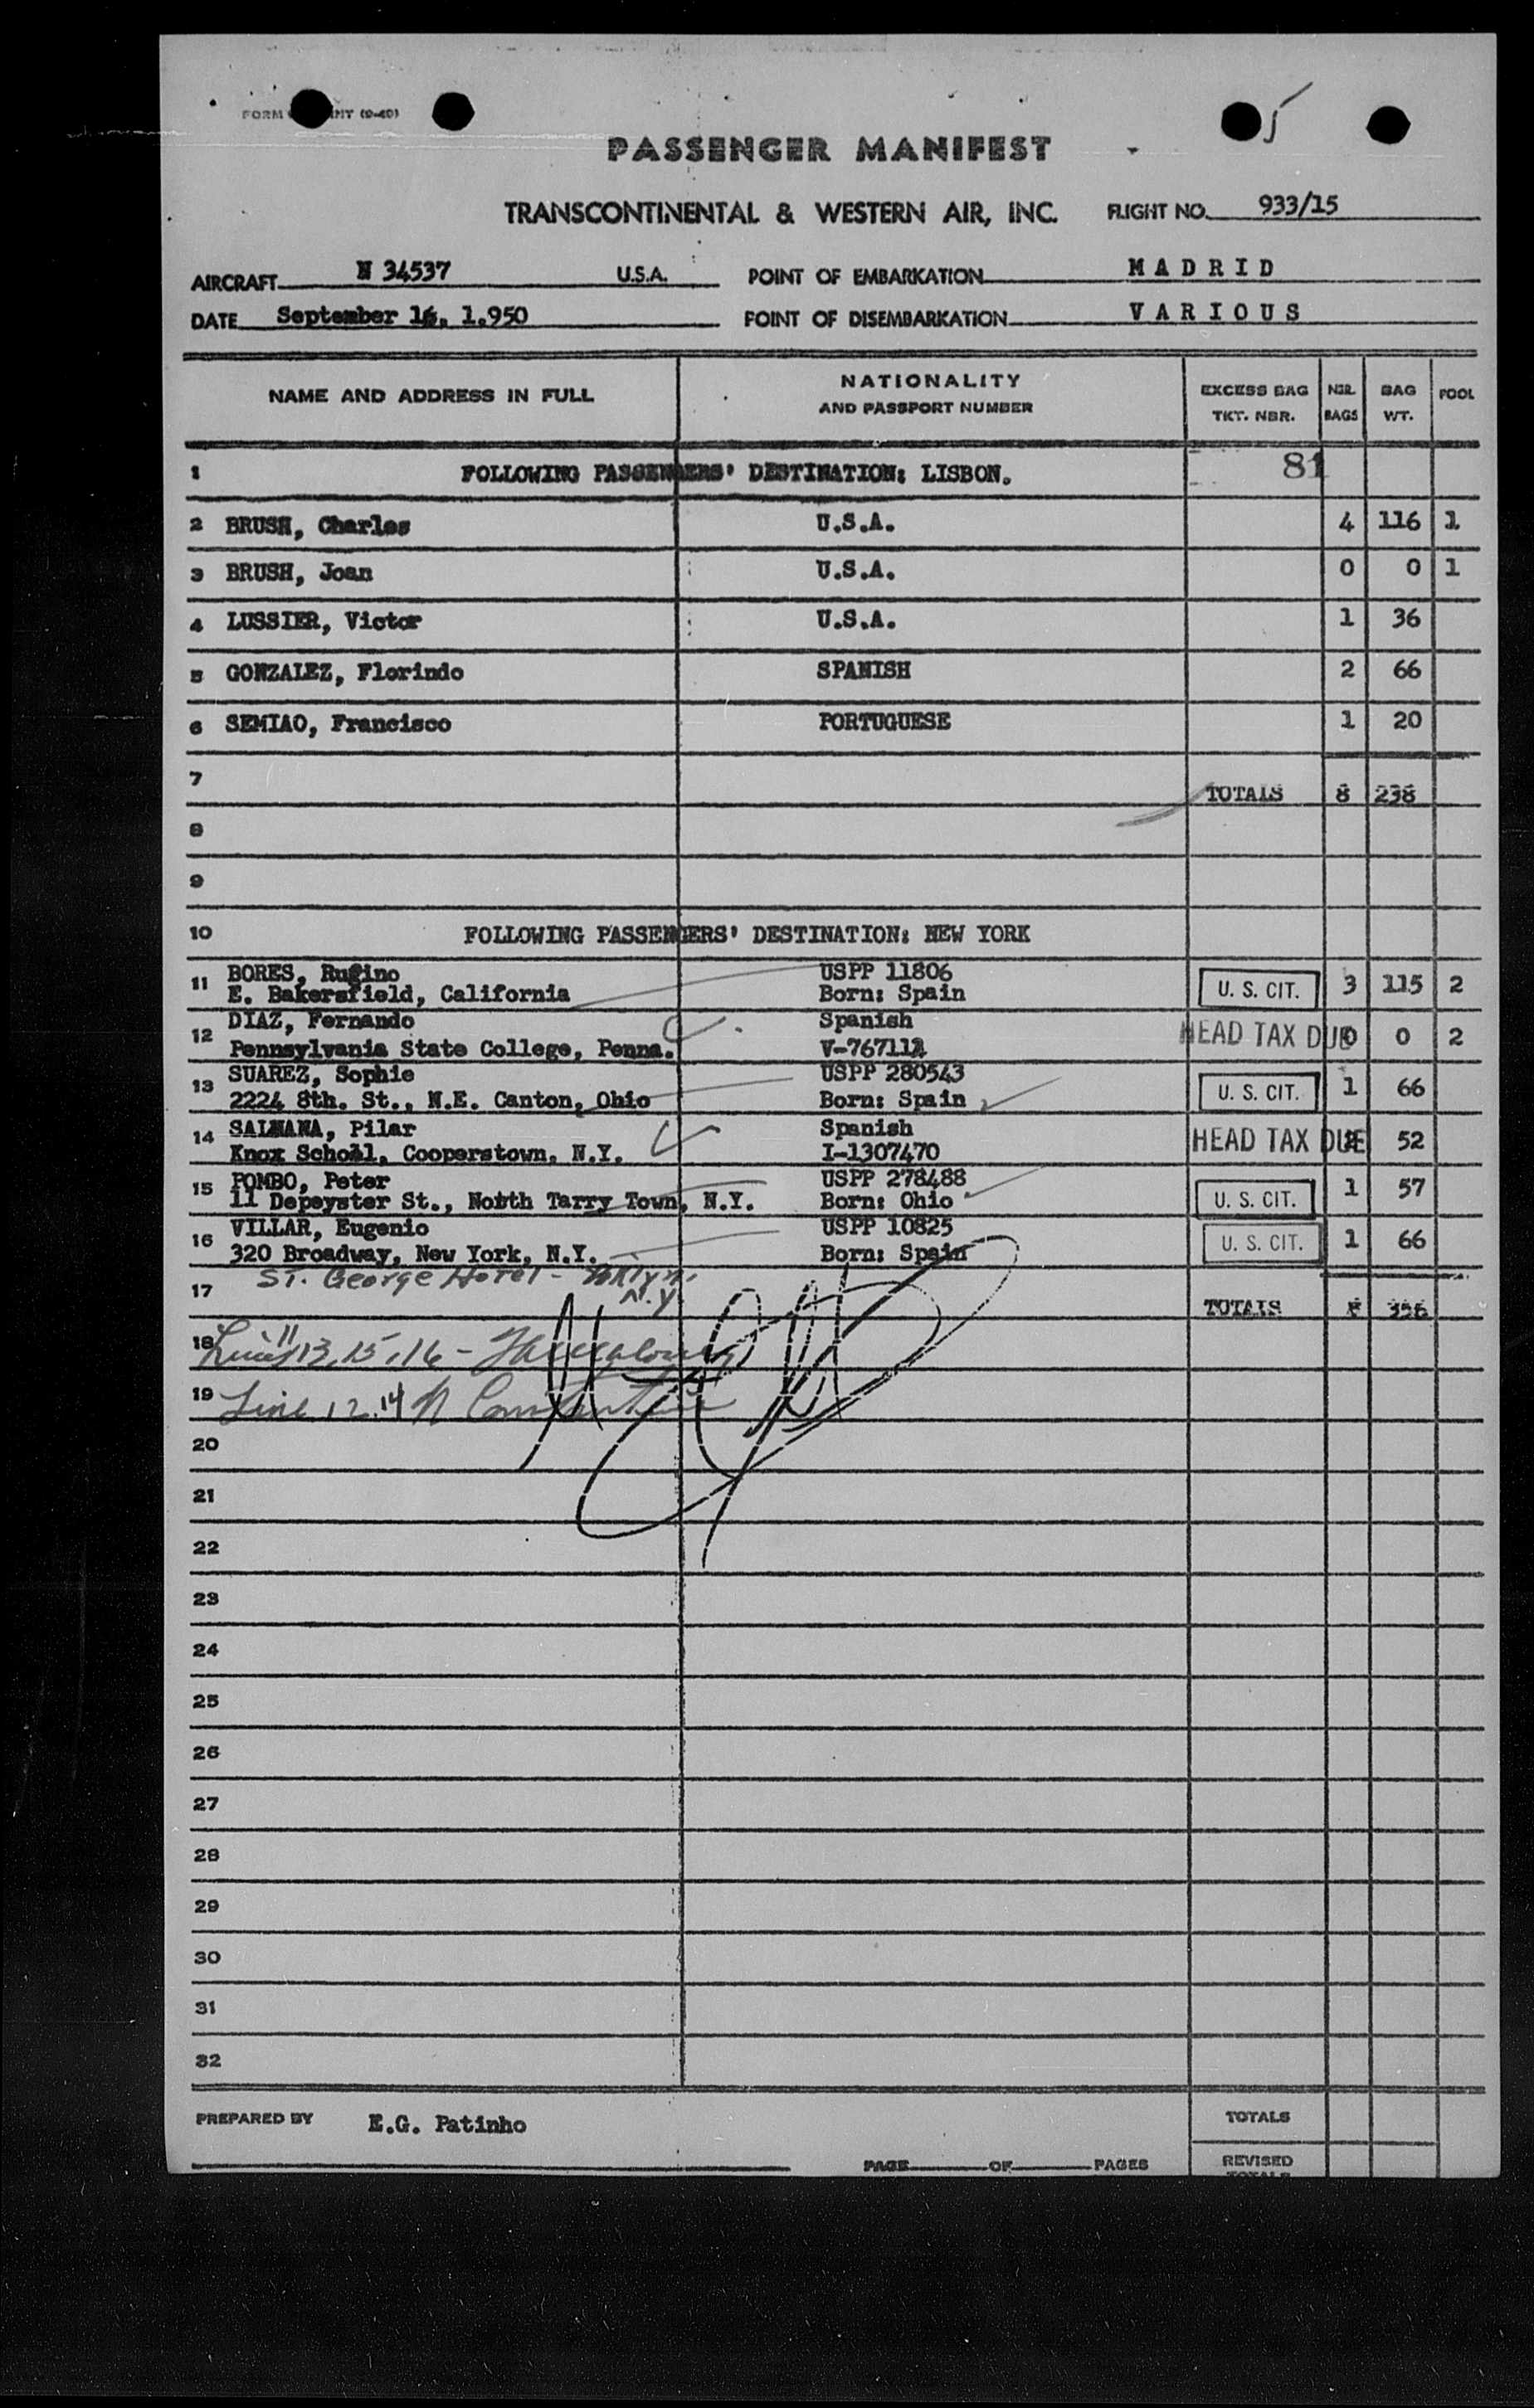 PASSENGER MANIFEST
TRANSCONTINENTAL & WESTERN AIR, INC. FLIGHT NO. 933/15
AIRCRAFT N 34537 U.S.A. POINT OF EMBARKATION MADRID
DATE September 16, 1.950 POINT OF DISEMBARKATION VARIOUS
NAME AND ADDRESS IN FULL NATIONALITY AND PASSPORT NUMBER EXCESS BAG TKT. NBR. NBR. BAGS BAG WT. POOL
1 FOLLOWING PASSENGERS' DESTINATION: LISBON. 81
2 BRUSH, Charles U.S.A. 4 116 1
3 BRUSH, Joan U.S.A. 0 0 1
4 LUSSIER, Victor U.S.A. 1 36
5 GONZALEZ, Florindo SPANISH 2 66
6 SEMIAO, Francisco PORTUGUESE 1 20
7 TOTALS 8 238
8
9
10 FOLLOWING PASSENGERS' DESTINATION: NEW YORK
11 BORES, Rugino USPP 11806 U. S. CIT. 3 115 2
E. Bakersfield, California Born: Spain
12 DIAZ, Fernando Spanish HEAD TAX DUE 0 0 2
Pennsylvania State College, Penna. V-767112
13 SUAREZ, Sophie USPP 280543 U. S. CIT. 1 66
2224 8th. St., N.E. Canton, Ohio Born: Spain
14 SALMANA, Pilar Spanish HEAD TAX DUE 52
Knox School, Cooperstown, N.Y. I-1307470
15 POMBO, Peter USPP 278488 U. S. CIT. 1 57
11 Depeyster St., North Tarry Town, N.Y. Born: Ohio
16 VILLAR, Eugenio USPP 10825 U. S. CIT. 1 66
320 Broadway, New York, N.Y. Born: Spain
St. George Hotel - Bklyn, N.Y.
17 TOTALS 8 356
18 Lines 11 13, 15, 16 -
19 Line 12.14
20
21
22
23
24
25
26
27
28
29
30
31
32
PREPARED BY E.G. Patinho TOTALS
PAGE OF PAGES REVISED TOTALS